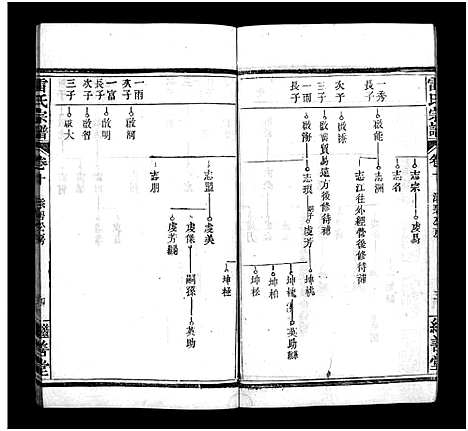 雷氏宗譜
卷十
繼善堂
志宗
虞易
志名
一秀
長子
啟能
志洲
志江往外經營後修待補
次子
啟添
三子
啟富貿易遠方後修待補
一雨
長子
啟衡
志琪
虞芳
坤桃
坤
英助
坤柏
坤松
一雨
次子
啟河
一富
長子
啟明
次子
啟智
三子
啟大
志盟
虞美
坤極
虞保
嗣孫
英助
虞芳
志朋
雷氏宗譜
卷十
繼善堂